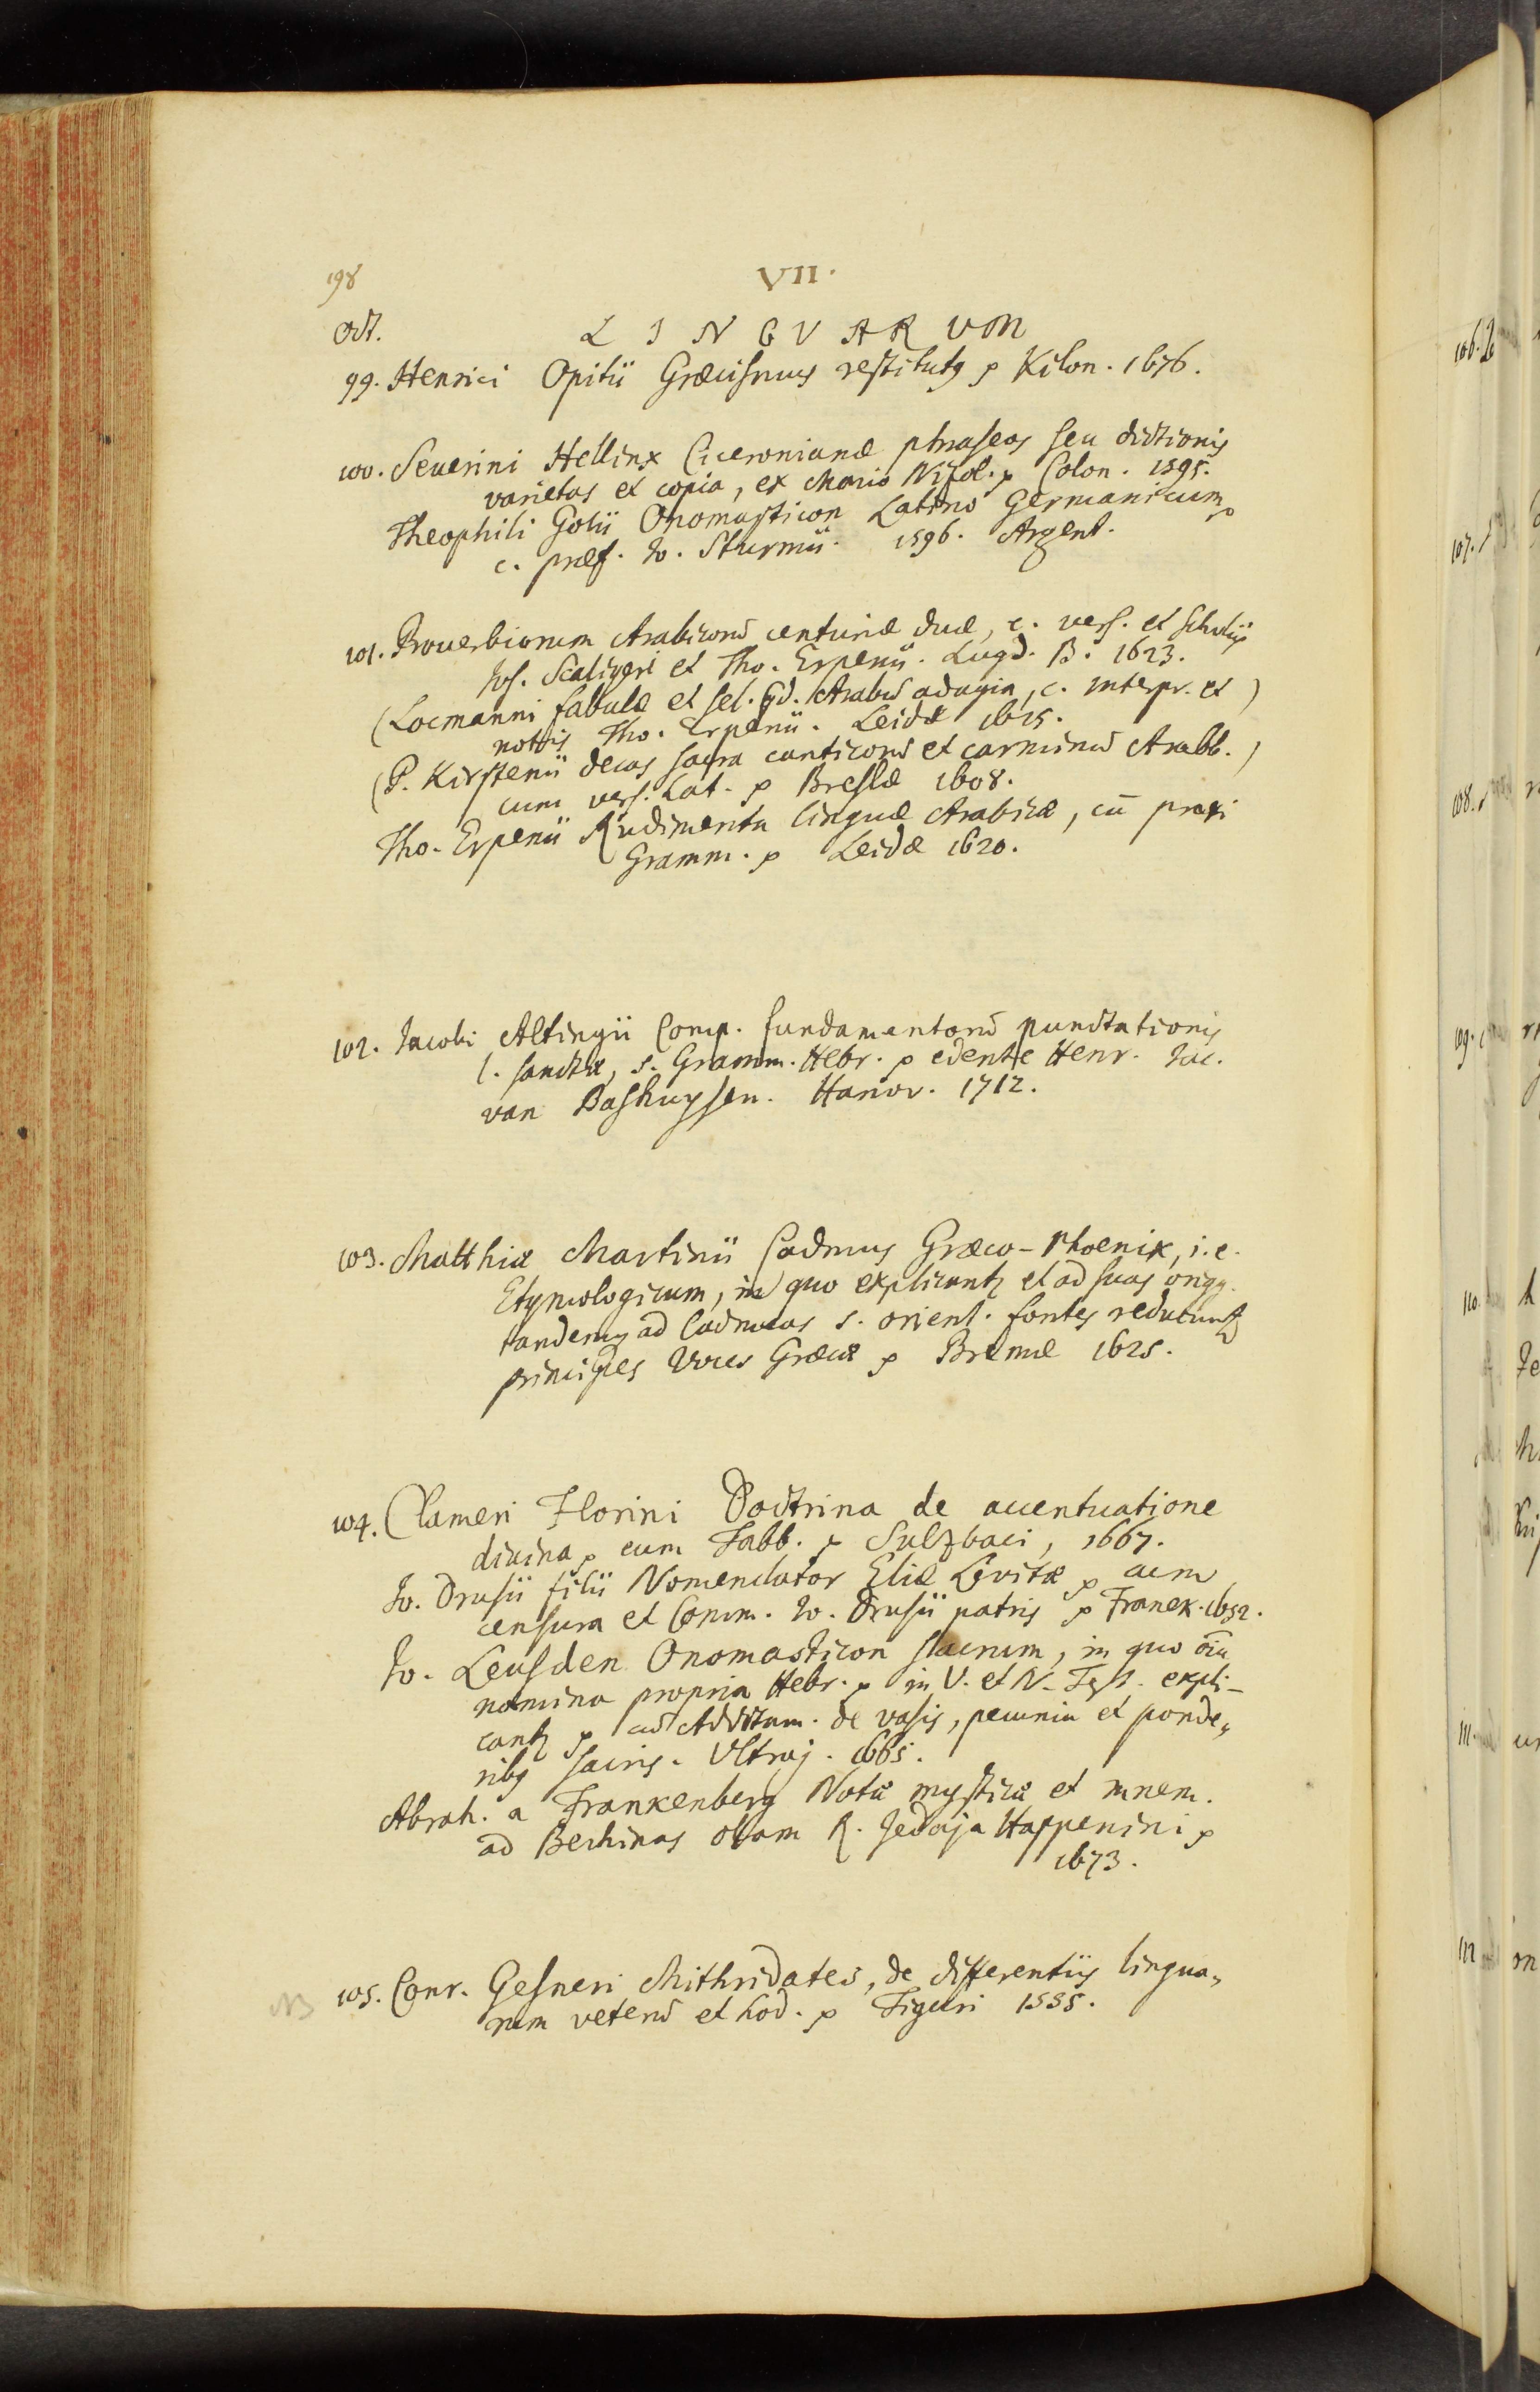 198
VII.
Oct.
LINGVARVM
99. Henrici Opitii Græcismus restitutus p Kilon. 1676.
100. Seuerini Hellinx Ciceronianæ phraseos seu dictionis
varietas et copia, ex Mario Nizol. p Colon. 1595.
Theophili Golii Onomasticon Latino Germanicum p
c. præf. Io. Sturmii. 1596. Argent.
101. Prouerbiorum Arabicorum centuriæ duæ, c. vers. et scholiis
Ios. Scaligeri et Tho. Erpenii. Lugd. B. 1623.
(Locmanni fabulæ et sel. qd. Arabum adagia, c. interpr. et )
nottis Tho. Erpenii. Leidæ 1615.
(P. Kirstenii decas sacra canticorum et carminum Arabb. )
cum vers. Lat. p Breslæ 1608.
Tho. Erpenii Rudimenta linguæ Arabicæ, cu̅ praxi
Gramm. p Leidæ 1620.
102. Iacobi Altingii Comp. fundamentorum punctationis
l. sanctæ, s. Gramm. Hebr. p edente Henr. Iac.
van Bashuysen. Hanov. 1712.
103. Matthiæ Martinii Cadmus Græco-Phoenix, i. e.
Etymologicum, in quo explicantur et ad suas origg.
tandemq ad Cadmeas s. orient. fontes reducuntur
principes Voces Græcæ p Bremæ 1625.
104. Clameri Florini Doctrina de accentuatione
diuina p cum Tabb. p Sulzbaci, 1667.
Io. Drusii filii Nomenclator Eliæ Levitæ p cum
censura et Comm. Io. Drusii patris p Franek. 1652.
Io. Leusden Onomasticon sacrum, in quo oi̅a
nomina propria Hebr. p in V. et N. Test. expli-
cantur p cum Additam. de vasis, pecunia et ponde-
ribus sacris. Vltraj. 1665.
Abrah. a Frankenberg Notæ mysticæ et mnem.
ad Bechinas olam R. Jedaja Happenini p
1673.
NB
105. Conr. Gesneri Mithridates, de differentiis lingua-
rum veterum et hod. p Tiguri 1555.
106.
107.
108.
109.
110.
111.
112